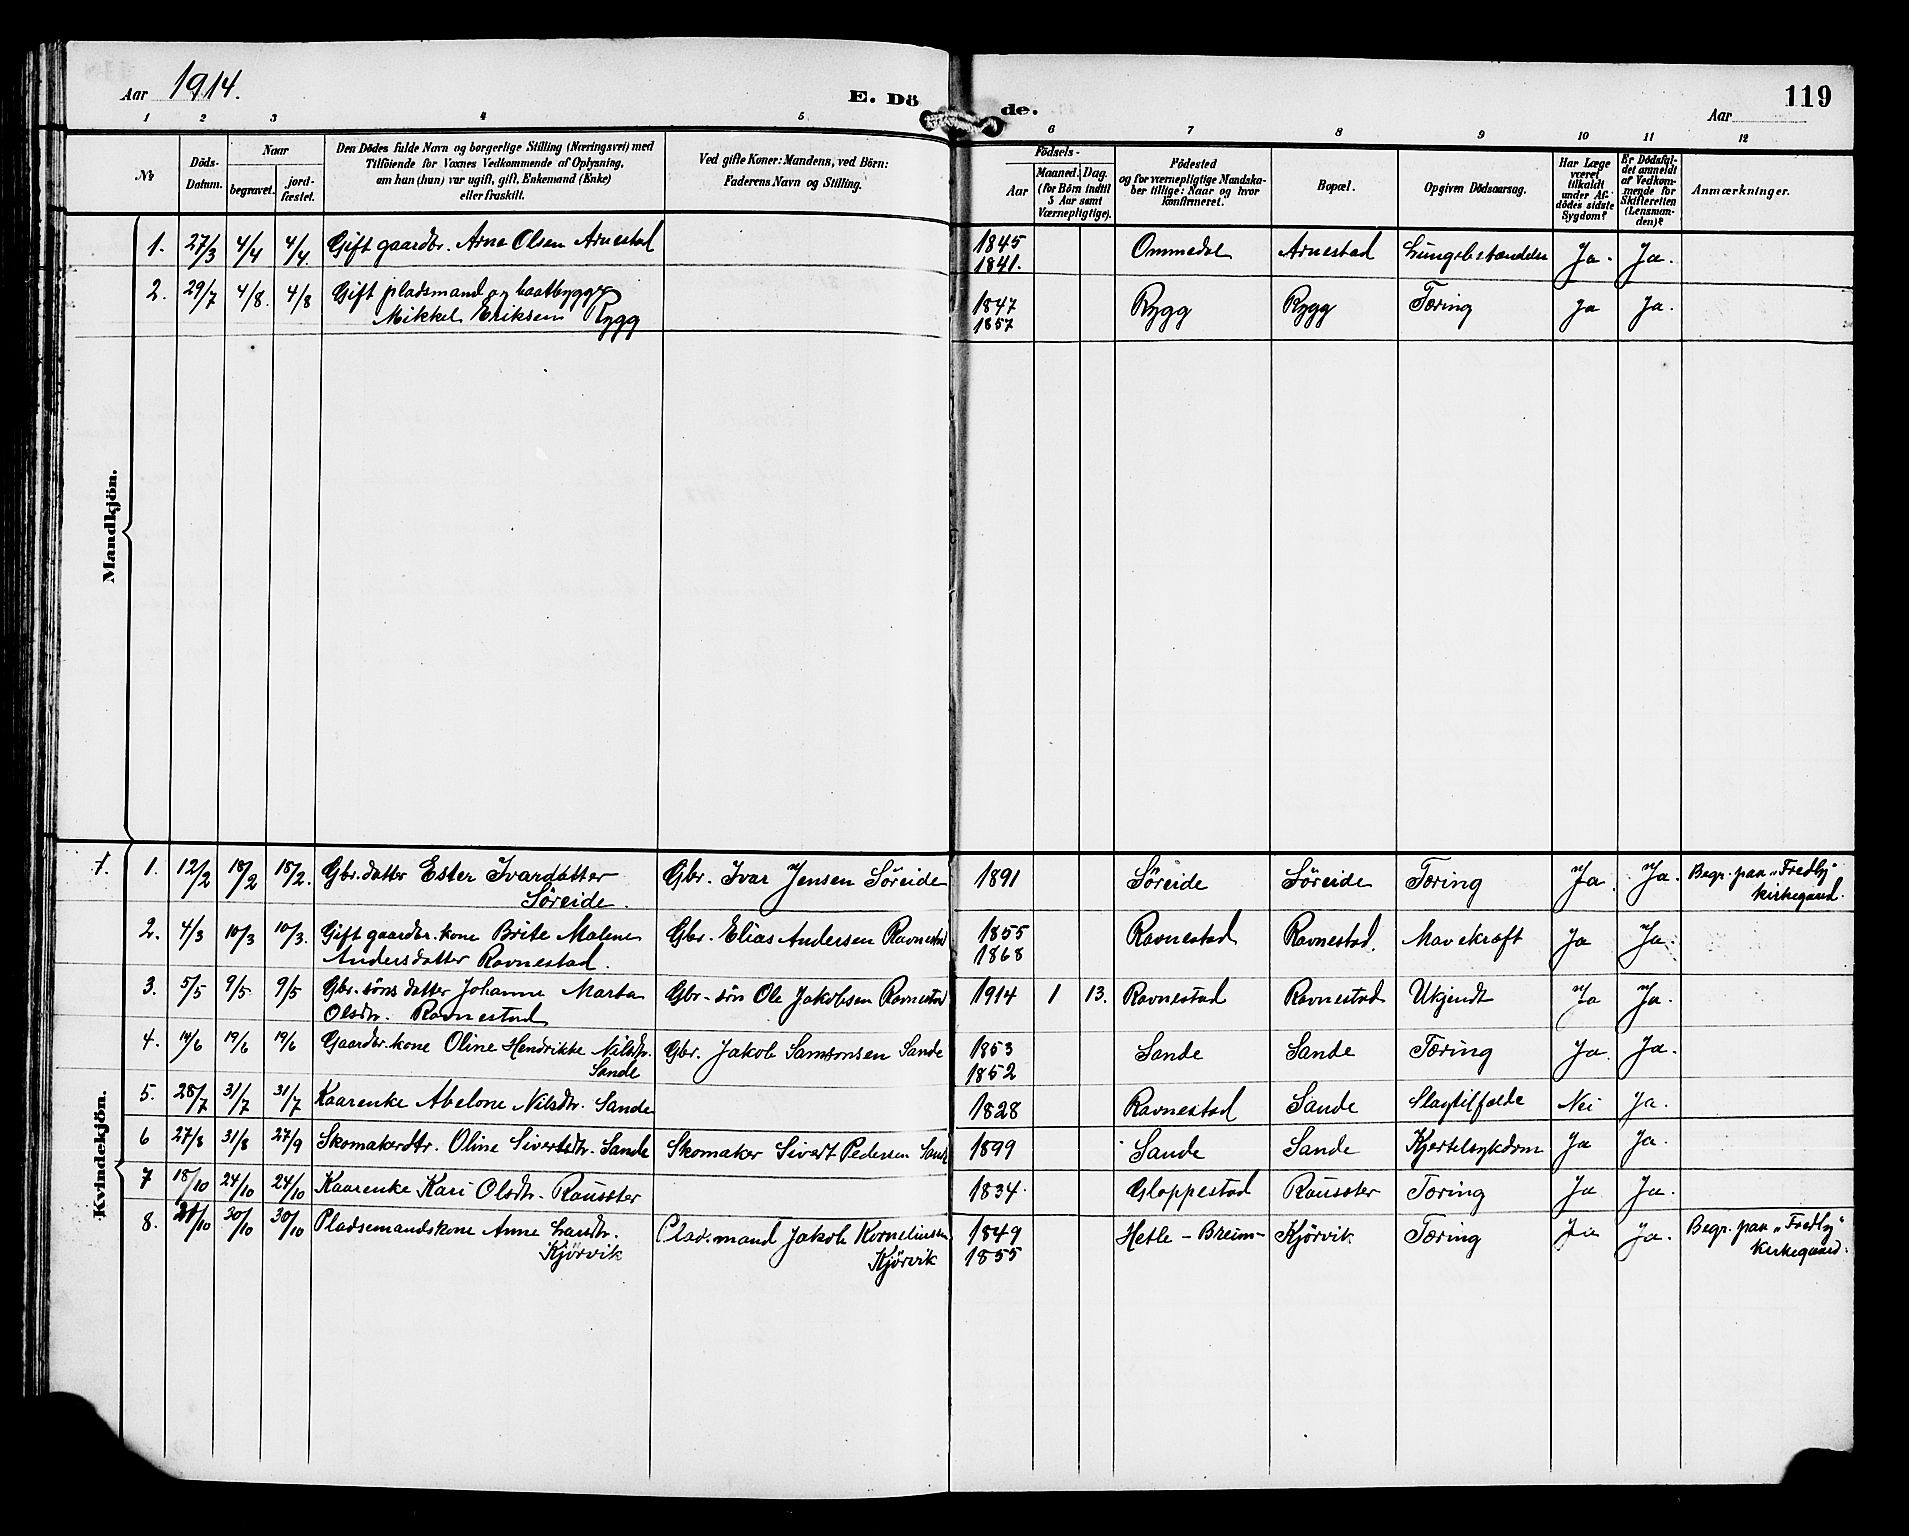 Aar 1914. E. Dö de. Aar 119
1 2 3 4 5 6 7 8 9 10 11 12
№
Döds-Datum.
Naar
begravet.
jord-fæstet.
Den Dödes fulde Navn og borgerlige Stilling (Næringsvei) med
Tilföiende for Voxnes Vedkommende af Oplysning,
om han (hun) var ugift, gift, Enkemand (Enke)
eller fraskilt.
Ved gifte Koner: Mandens, ved Börn:
Faderens Navn og Stilling.
Födsels-
Aar
Maaned. Dag.
(for Börn indtil
5 Aar samt
Værnepligtige).
Födested
og for værnepligtige Mandska-
ber tillige: Naar og hvor
konfirmeret.
Bopæl.
Opgiven Dödsaarsag.
Har Læge
været
tilkaldt
under Af-
dödes sidste
Sygdom?
Er Dödsfal-
det anmeldt
af Vedkom-
mende for
Skifteretten
(Lensman-
den)?
Anmærkninger.
Mandkjön.
1. 27/3 4/4 4/4. Gift gaardbr. Arne Olsen Arnestad 1845 Ommedal Arnestad Lungebetændelse Ja. Ja.
1841.
2. 29/7 4/8. 4/8 Gift pladsmand og baatbygger 1847 Rygg Rygg Tæring Ja Ja.
Mikkel Eriksen Rygg 1857
Kvindekjön.
1. 1. 12/2 18/2 18/2. Gbr.datter Ester Ivardatter Gbr. Ivar Jensen Söreide 1891 Söreide Söreide Tæring Ja. Ja. Begr. paa "Fredly"
Söreide. kirkegaard.
2. 4/3 10/3 10/3. Gift gaardbr. kone Brite Malene Gbr. Elias Andersen Ravnestad 1855 Ravnestad Ravnestad. Mavekræft Ja Ja.
Andersdatter Ravnestad. 1868
3. 5/5 9/5. 9/5 Gbr.-söns datter Johanne Marta Gbr.-sön Ole Jakobsen Ravnestad 1914 1 13. Ravnestad Ravnestad Ukjendt Ja Ja.
Olsdtr. Ravnestad
4. 14/6 19/6 19/6 Gaardbr.kone Oline Hendrikke Nilsdtr. Gbr. Jakob Samsonsen Sande 1853 Sande Sande Tæring Ja. Ja.
Sande 1852
5. 28/7 31/7 31/7 Kaarenke Abelone Nilsdtr. Sande 1828 Ravnestad Sande Slagtilfælde Nei Ja.
6 27/8 31/8 27/9 Skomakerdtr. Oline Sivertsdtr. Sande Skomaker Sivert Pedersen Sande 1899 Sande Sande Kjertelsykdom Ja Ja.
7 18/10 24/10 24/10 Kaarenke Kari Olsdtr. Rausster 1834. Gloppestad Rausster Tæring Ja Ja.
8. 30/10 30/10 Pladsemandskone Anne Larsdtr. Plads.mand Jakob Korneliussen 1849 Hetle - Breim- Kjörvik Tæring Ja Ja. Begr. paa "Fredly"
Kjörvik Kjörvik 1855 kirkegaard.